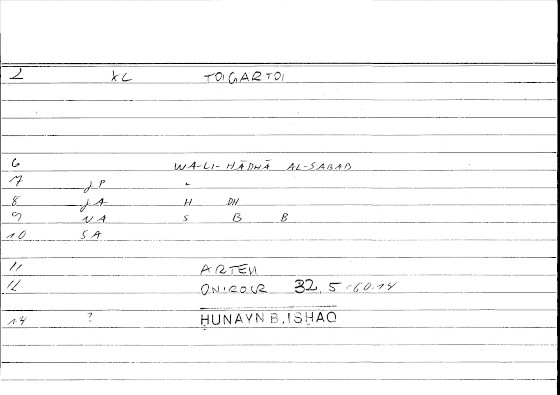 2 XL TOIGARTOI
6 WA-LI-HĀDHĀ AL-SABAB
7 JP L
8 JA H DH
9 NA S B B
10 SA
11 ARTEM
12 ONIROCR 32, 5 -60.14
14 ? ḤUNAYN B. ISḤĀQ